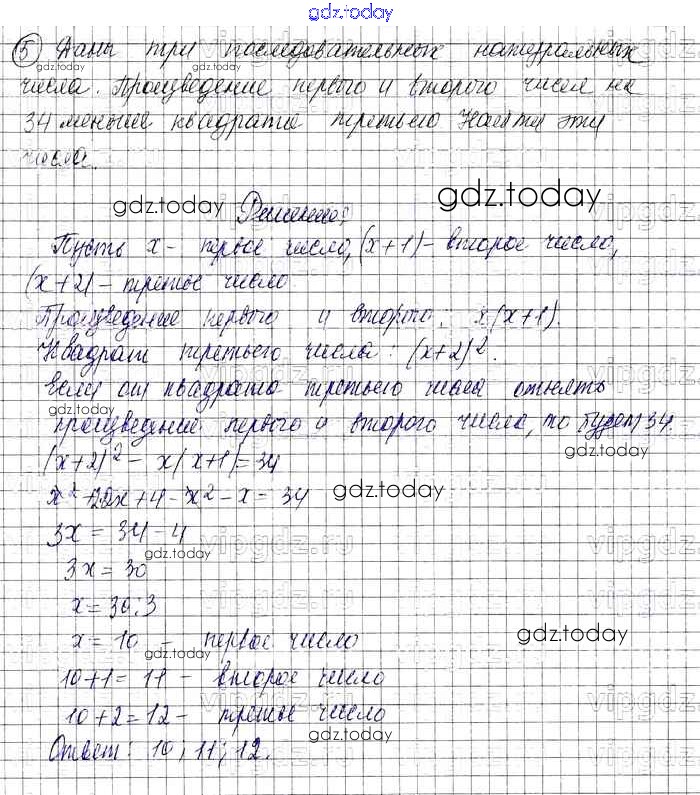 gdz.today
⑤ Даны три последовательных натуральных
gdz.today
числа. Произведение первого и второго чисел на
34 меньше квадрата третьего. Найти эти
числа.
gdz.today gdz.today
Решение:
Пусть x - первое число, (x+1) - второе число,
(x+2) - третье число
Произведение первого и второго: x(x+1).
Квадрат третьего числа: (x+2)².
Если от квадрата третьего числа отнять
gdz.today
произведение первого и второго числа, то будет 34.
gdz.today
(x+2)² - x(x+1) = 34
x² + 22x + 4 - x² - x = 34 gdz.today
3x = 34 - 4
gdz.today
vipgdz.ru
3x = 30
x = 30:3
x = 10 - первое число gdz.today
gdz.today
10+1 = 11 - второе число
10+2 = 12 - третье число
gdz.today
Ответ: 10; 11; 12.